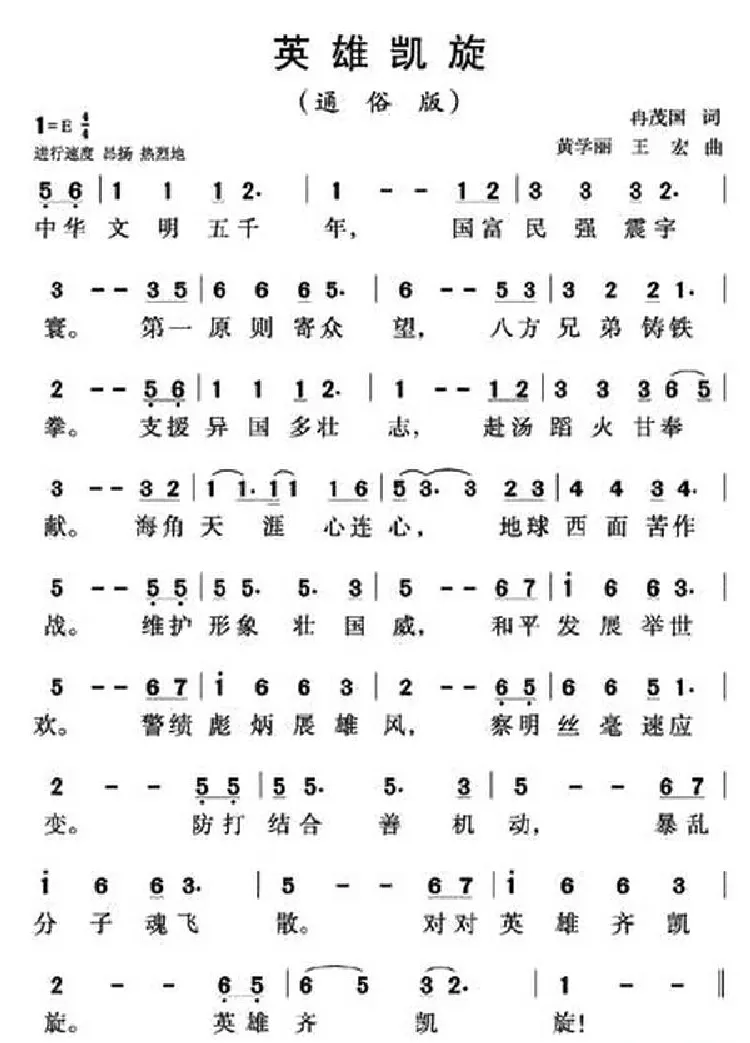 英雄凯旋
(通俗版)
1=E 4/4
冉茂国 词
进行速度 昂扬 热烈地
黄学丽 王宏 曲
5 6 | 1 1 1 2. | 1 - - 1 2 | 3 3 3 2. |
中华 文 明 五千 年, 国富 民 强 震宇
3 - - 3 5 | 6 6 6 5. | 6 - - 5 3 | 3 2 2 1. |
寰。 第一 原 则 寄众 望, 八方 兄 弟 铸铁
2 - - 5 6 | 1 1 1 2. | 1 - - 1 2 | 3 3 3 6 5 |
拳。 支援 异 国 多壮 志, 赴汤 蹈 火 甘奉
3 - - 3 2 | 1 1. 1 1 1 6 | 5 3. 3 2 3 | 4 4 3 4. |
献。 海角 天 涯 心连 心, 地球 西 面 苦作
5 - - 5 5 | 5 5. 5. 3 | 5 - - 6 7 | i 6 6 3. |
战。 维护 形象 壮 国 威, 和平 发 展 举世
5 - - 6 7 | i 6 6 3 | 2 - - 6 5 | 6 6 5 1. |
欢。 警绩 彪 炳 展 雄 风, 察明 丝 毫 速应
2 - - 5 5 | 5 5. 5. 3 | 5 - - 6 7 |
变。 防打 结合 善 机 动, 暴乱
i 6 6 3. | 5 - - 6 7 | i 6 6 3 |
分 子 魂飞 散。 对对 英 雄 齐 凯
2 - - 6 5 | 6 5 3 2. | 1 - - ‖
旋。 英雄 齐 凯 旋!